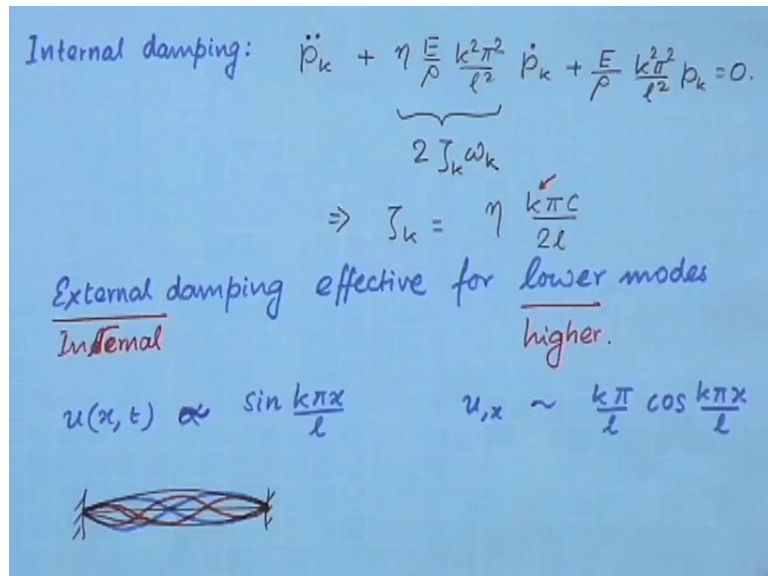 Internal damping: p̈ₖ + η E/ρ k²π²/l² ṗₖ + E/ρ k²π²/l² pₖ = 0.
2 ζₖ ωₖ
⇒ ζₖ = η kπc/2l
External damping effective for lower modes
Internal higher.
u(x, t) ∝ sin kπx/l u,x ~ kπ/l cos kπx/l